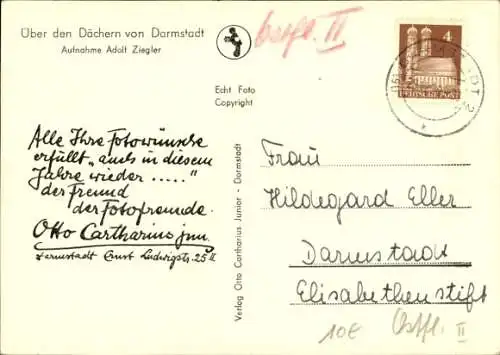 Über den Dächern von Darmstadt
Aufnahme Adolf Ziegler
Echt Foto
Copyright
4
DEUTSCHE POST
Alle Ihre Fotowünsche
erfüllt „auch in diesem
Jahre wieder ....."
der Freund
der Fotofreunde.
Otto Cartharius jun.
Darmstadt Ernst Ludwigstr. 25 II
Verlag Otto Cartharius Junior - Darmstadt
Frau
Hildegard Eller
Darmstadt
Elisabethenstift
10€
II